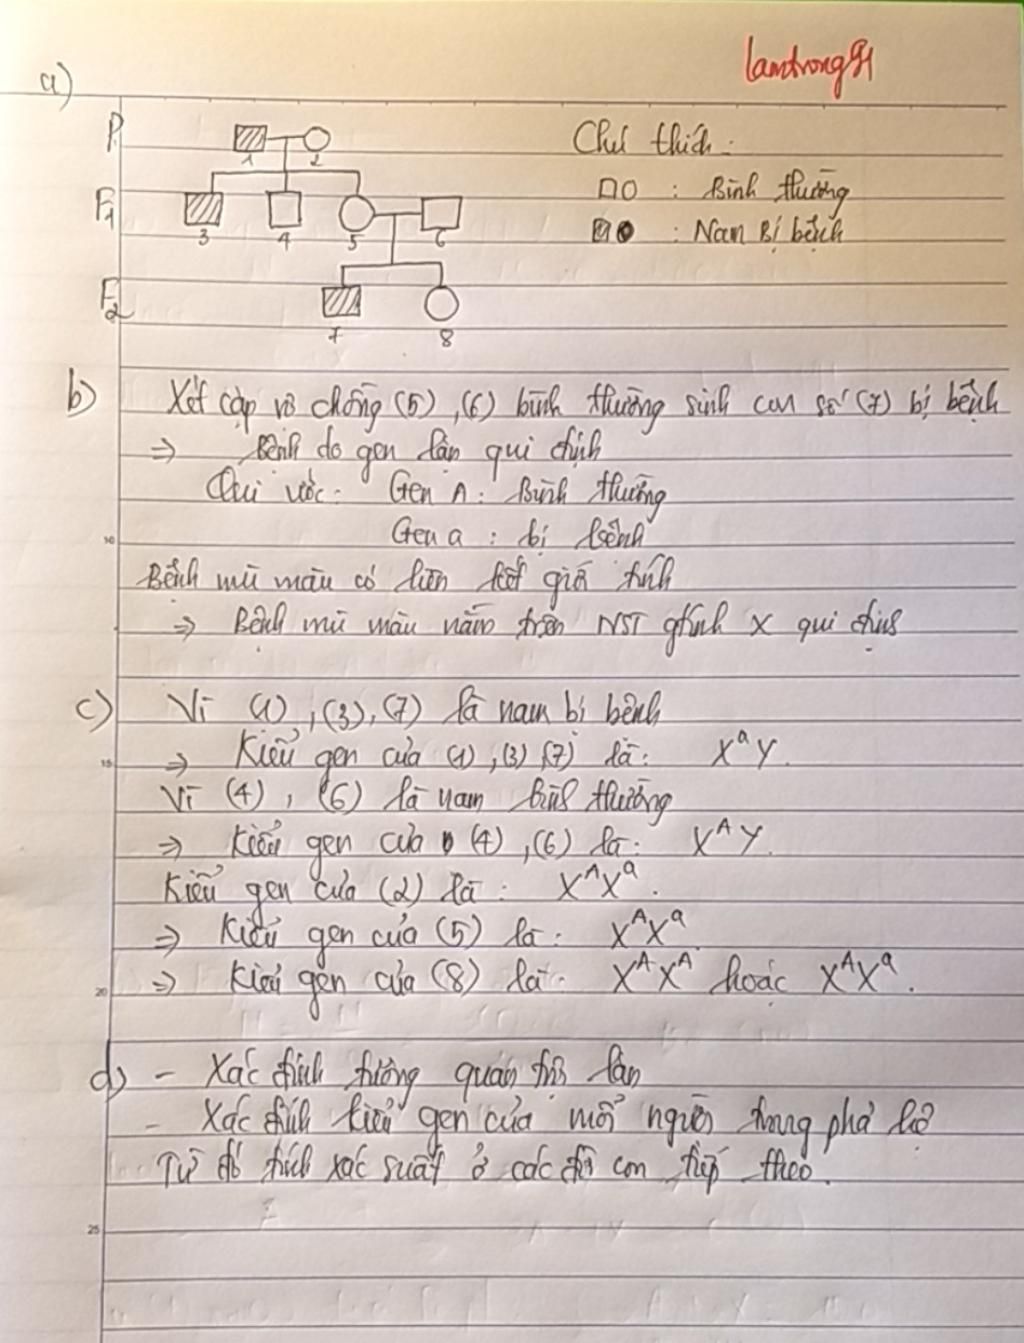 lamtrong91
a)
P
Chú thích:
1 2
□○ : Bình thường
F1
: Nam bị bệnh
3 4 5 6
F2
7 8
b) Xét cặp vợ chồng (5), (6) bình thường sinh con số (7) bị bệnh
⇒ Bệnh do gen lặn qui định
Qui ước: Gen A: Bình thường
Gen a : bị bệnh
10
Bệnh mù màu có liên kết giới tính
⇒ Bệnh mù màu nằm trên NST gtính X qui định
c) Vì (1), (3), (7) là nam bị bệnh
15 ⇒ Kiểu gen của (1), (3), (7) là: XᵃY.
Vì (4), (6) là nam bình thường
⇒ Kiểu gen của (4), (6) là: XᴬY.
Kiểu gen của (2) là: XᴬXᵃ.
⇒ Kiểu gen của (5) là: XᴬXᵃ
20 ⇒ Kiểu gen của (8) là: XᴬXᴬ hoặc XᴬXᵃ.
d) - Xác định tương quan trội lặn
- Xác định kiểu gen của mỗi người trong phả hệ
Từ đó tính xác suất ở các đời con tiếp theo.
25